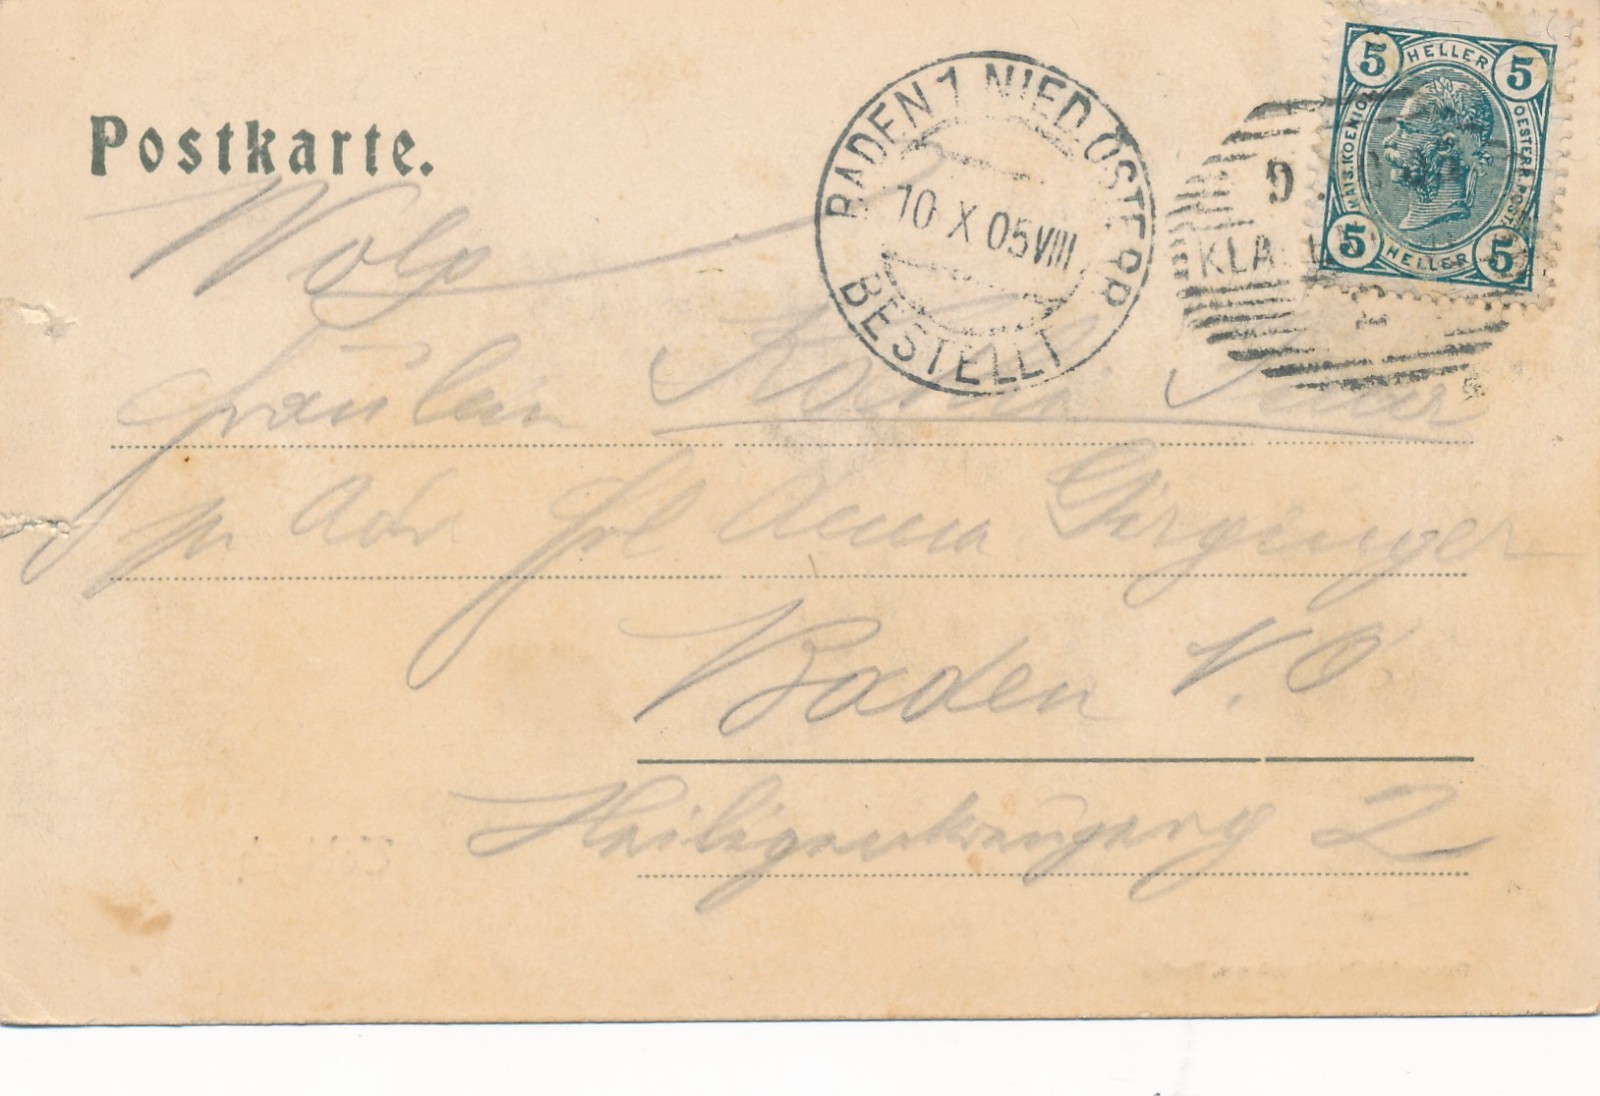 Postkarte.
BADEN 1 NIED. ÖSTERR.
10 X 05 VIII
BESTELLT
5 HELLER 5
KAIS. KOENIGL. OESTERR. POST.
5 HELLER 5
9.
KLA
Wolg
Fräulein
pr Adr. Frl Anna Girginger
Baden N. Ö.
Heiligenkreuzerg 2